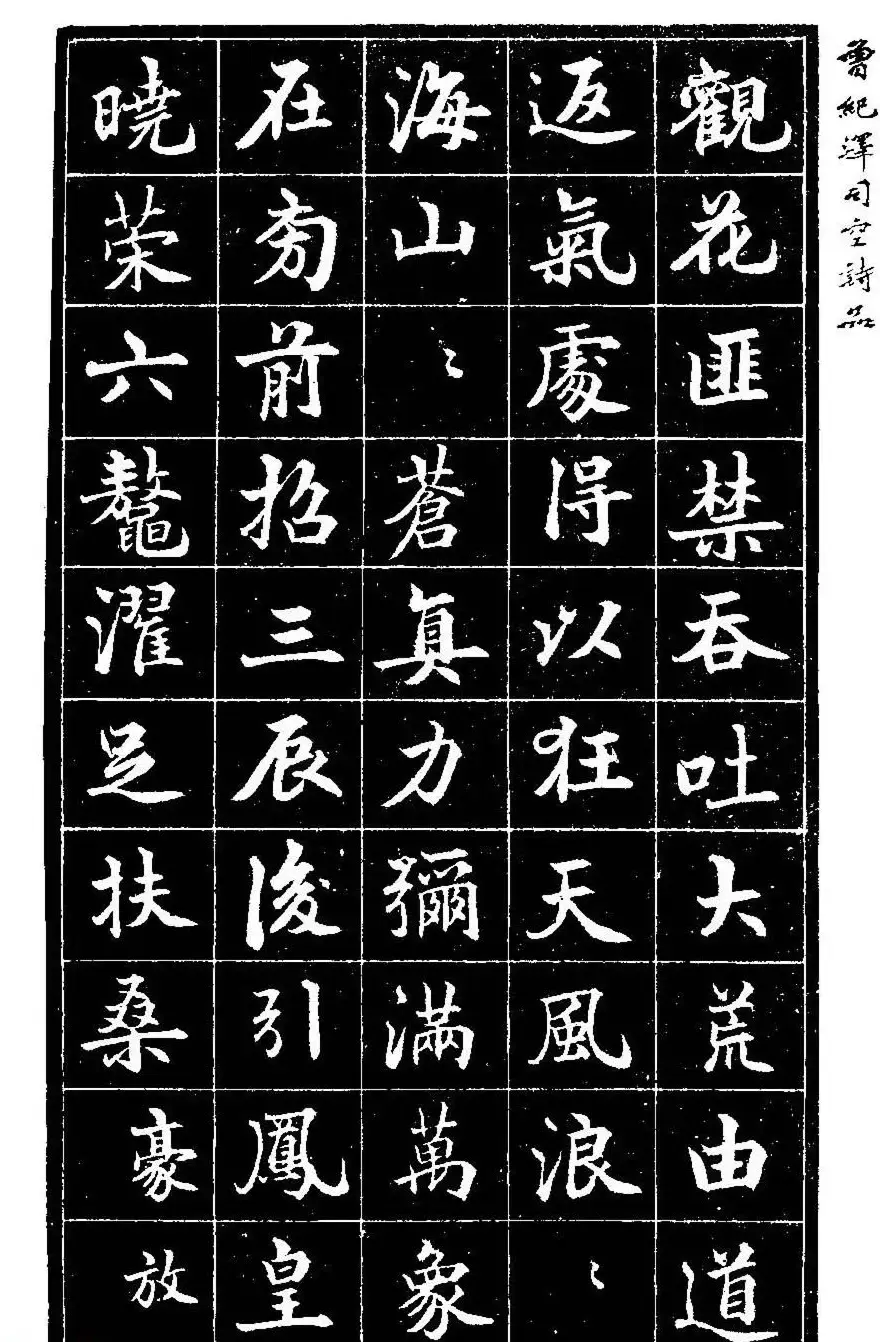 曾紀澤司空詩品
觀花匪禁吞吐大荒由道
返氣處得以狂天風浪〻
海山〻蒼真力彌滿萬象
在旁前招三辰後引鳳皇
曉策六鼇濯足扶桑豪放